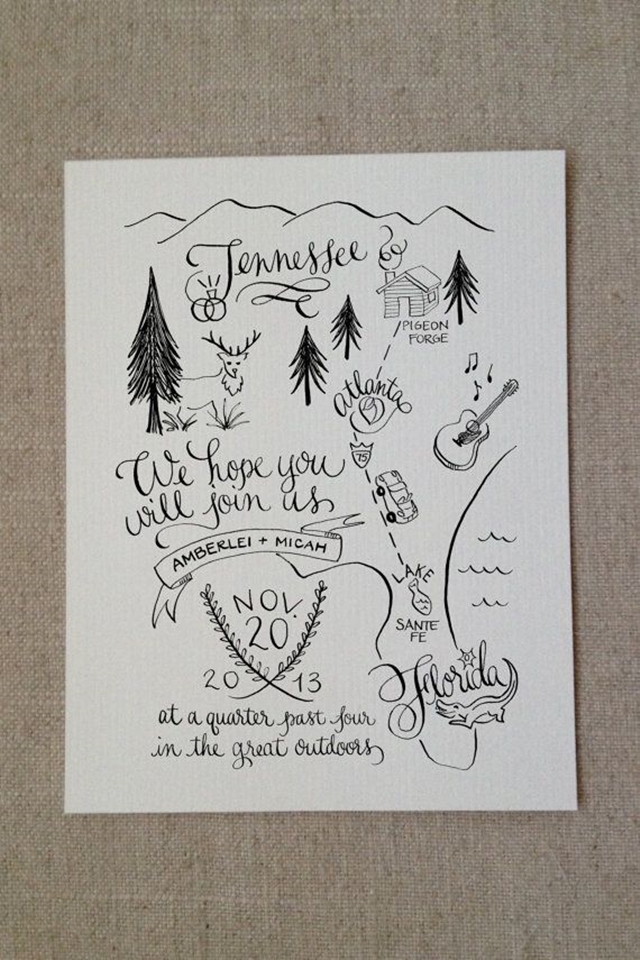 Tennessee
PIGEON
FORGE
Atlanta
75
We hope you
will join us
AMBERLEI + MICAH
LAKE
SANTE
FE
NOV.
20
20 13
Florida
at a quarter past four
in the great outdoors